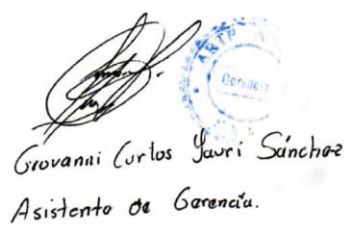 Giovanni Carlos Yauri Sánchez
Asistente de Gerencia.